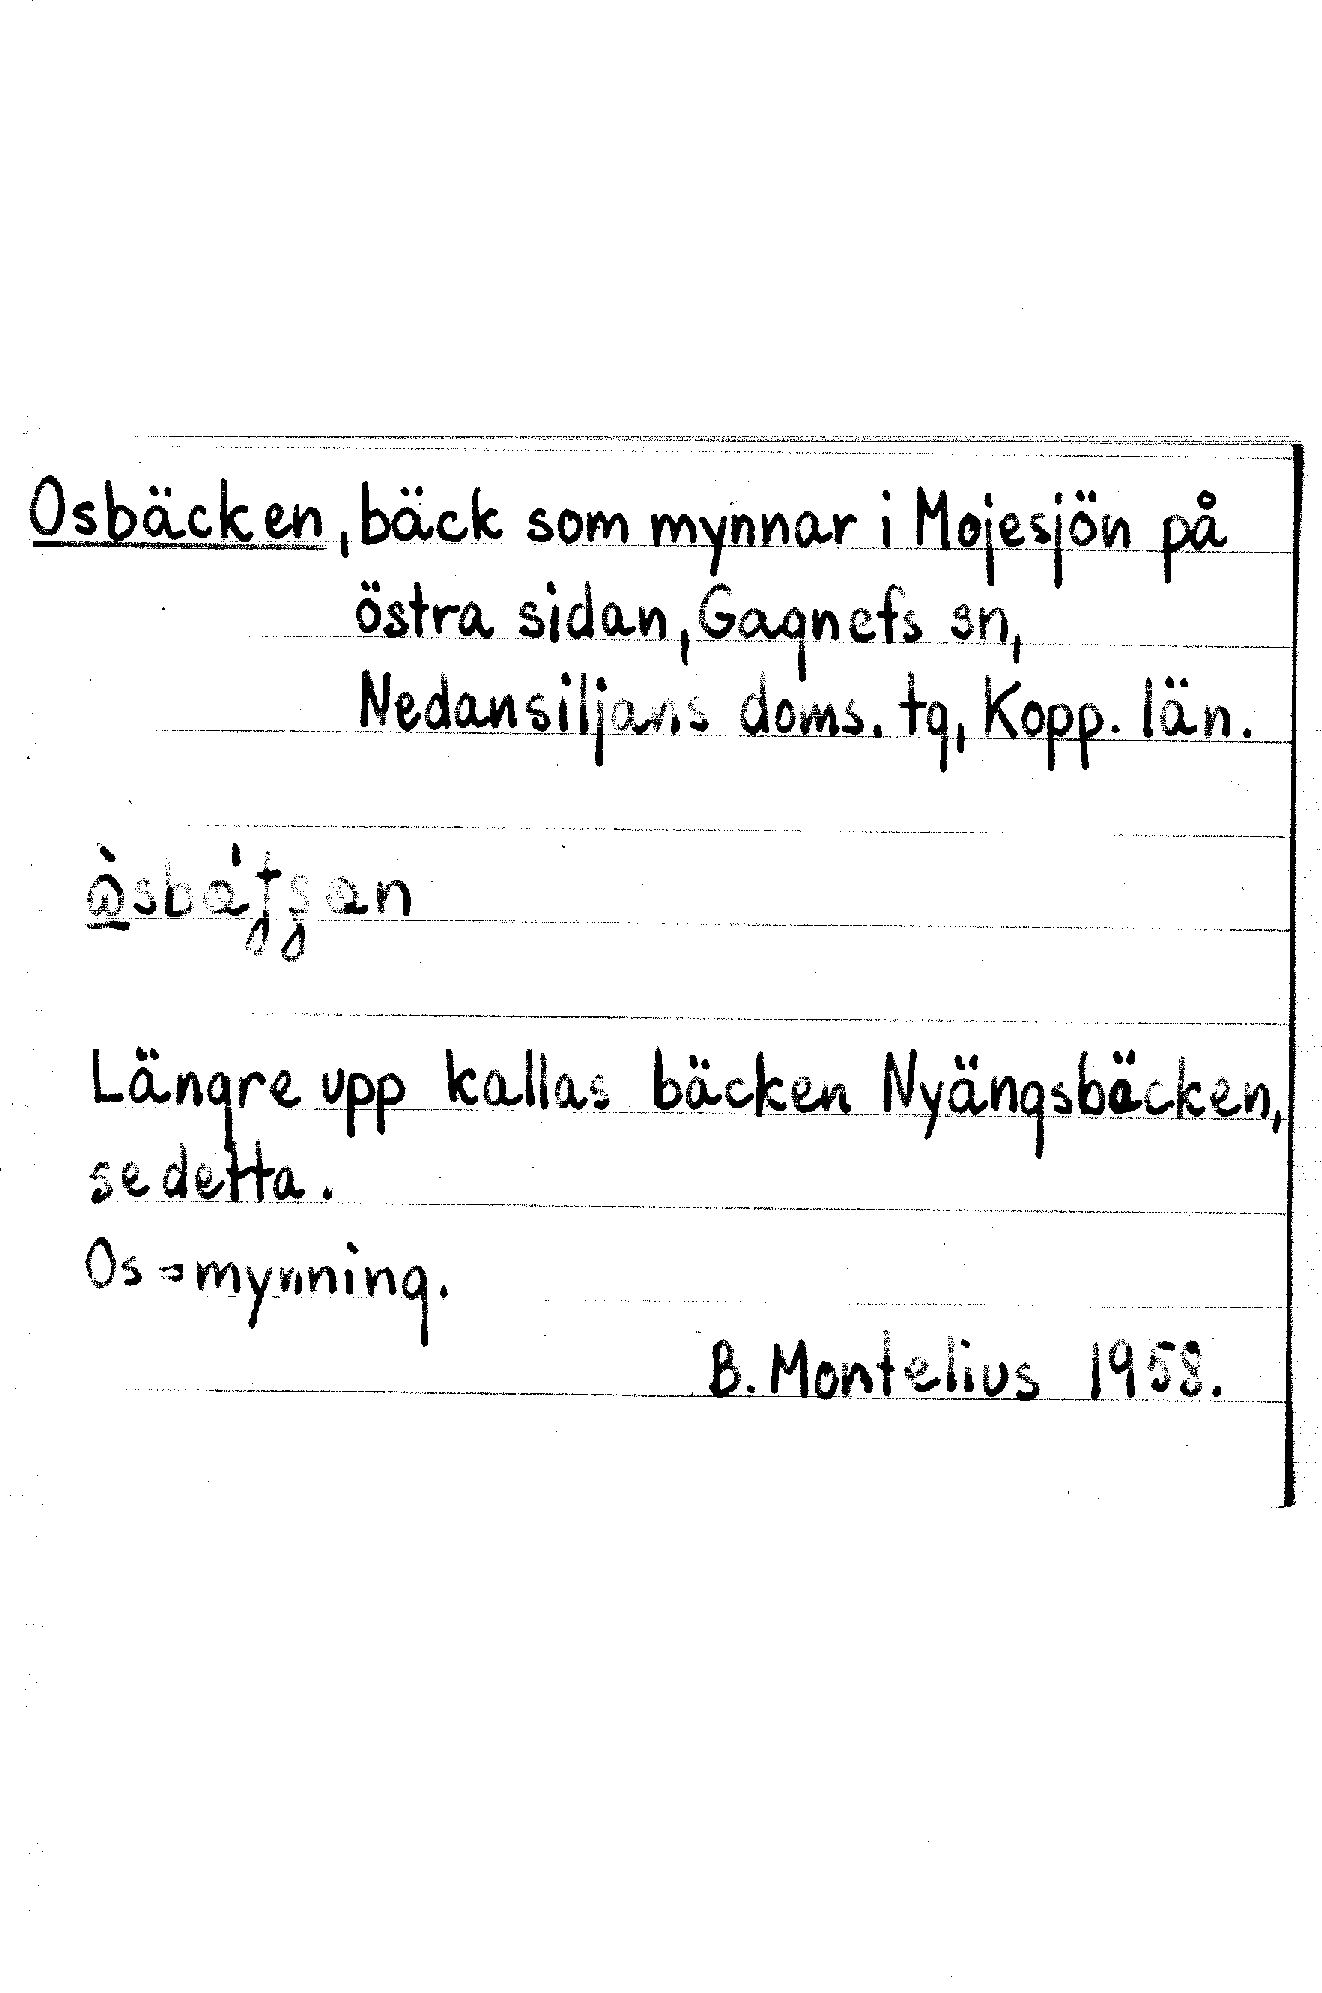 Osbäcken, bäck som mynnar i Mojesjön på
östra sidan, Gagnefs sn,
Nedansiljans doms. tg, Kopp. län.
Längre upp kallas bäcken Nyängsbäcken,
se detta.
Os = mynning.
B. Montelius 1958.